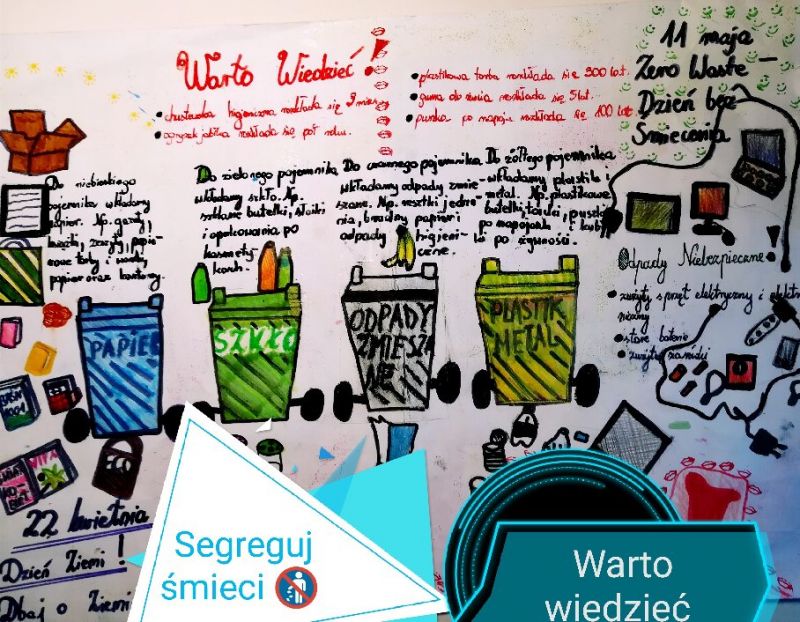 Warto Wiedzieć!
chusteczka higieniczna rozkłada się 3 mies.
ogryzek jabłka rozkłada się pół roku.
plastikowa torba rozkłada się 300 lat.
guma do żucia rozkłada się 5 lat.
puszka po napoju rozkłada się 100 lat
11 maja
Zero Waste –
Dzień bez
Śmiecenia
Do niebieskiego
pojemnika wkładamy
papier. Np. gazety,
książki, zeszyty, papie-
rowe torby i worki,
papier oraz kartony.
Do zielonego pojemnika
wkładamy szkło. Np.
szklane butelki, słoiki
i opakowania po
kosmety-
kach.
Do czarnego pojemnika
wkładamy odpady zmie-
szane. Np. resztki jedze-
nia, brudny papier i
odpady higieni-
czne.
Do żółtego pojemnika
wkładamy plastik i
metal. Np. plastikowe
butelki, torebki, puszki
po napojach i
po żywności.
Odpady Niebezpieczne
zużyty sprzęt elektryczny i elektro
niczny
stare baterie
zużyte żarówki
PAPIER
SZKŁO
ODPADY
ZMIESZA
NE
PLASTIK
METAL
22 kwietnia
Dzień Ziemi!
Dbaj o Ziemi
Segreguj
śmieci
Warto
wiedzieć